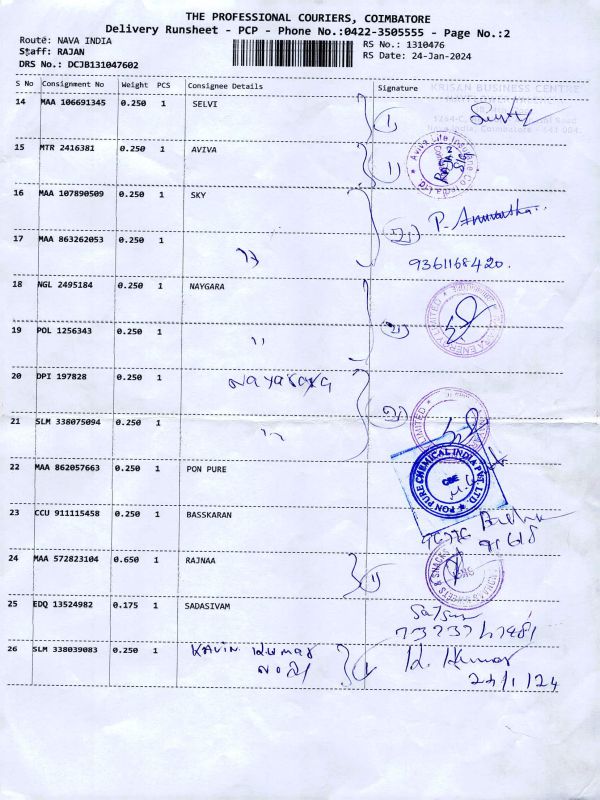 THE PROFESSIONAL COURIERS, COIMBATORE
Delivery Runsheet - PCP - Phone No.:0422-3505555 - Page No.:2
Route: NAVA INDIA
Staff: RAJAN
DRS No.: DCJB131047602
RS No.: 1310476
RS Date: 24-Jan-2024
S No Consignment No Weight PCS Consignee Details Signature
KRISAN BUSINESS CENTRE
14 MAA 106691345 0.250 1 SELVI
15 MTR 2416381 0.250 1 AVIVA
16 MAA 107890509 0.250 1 SKY
17 MAA 863262053 0.250 1
9361168420.
18 NGL 2495184 0.250 1 NAYGARA
19 POL 1256343 0.250 1 "
20 DPI 197828 0.250 1
21 SLM 338075094 0.250 1 "
22 MAA 862057663 0.250 1 PON PURE
PON PURE CHEMICAL INDIA PVT. LTD
CBE
23 CCU 911115458 0.250 1 BASSKARAN
24 MAA 572823104 0.650 1 RAJNAA
25 EDQ 13524982 0.175 1 SADASIVAM
26 SLM 338039083 0.250 1 KAVIN KUMAR
K. Kumar
24/1/24